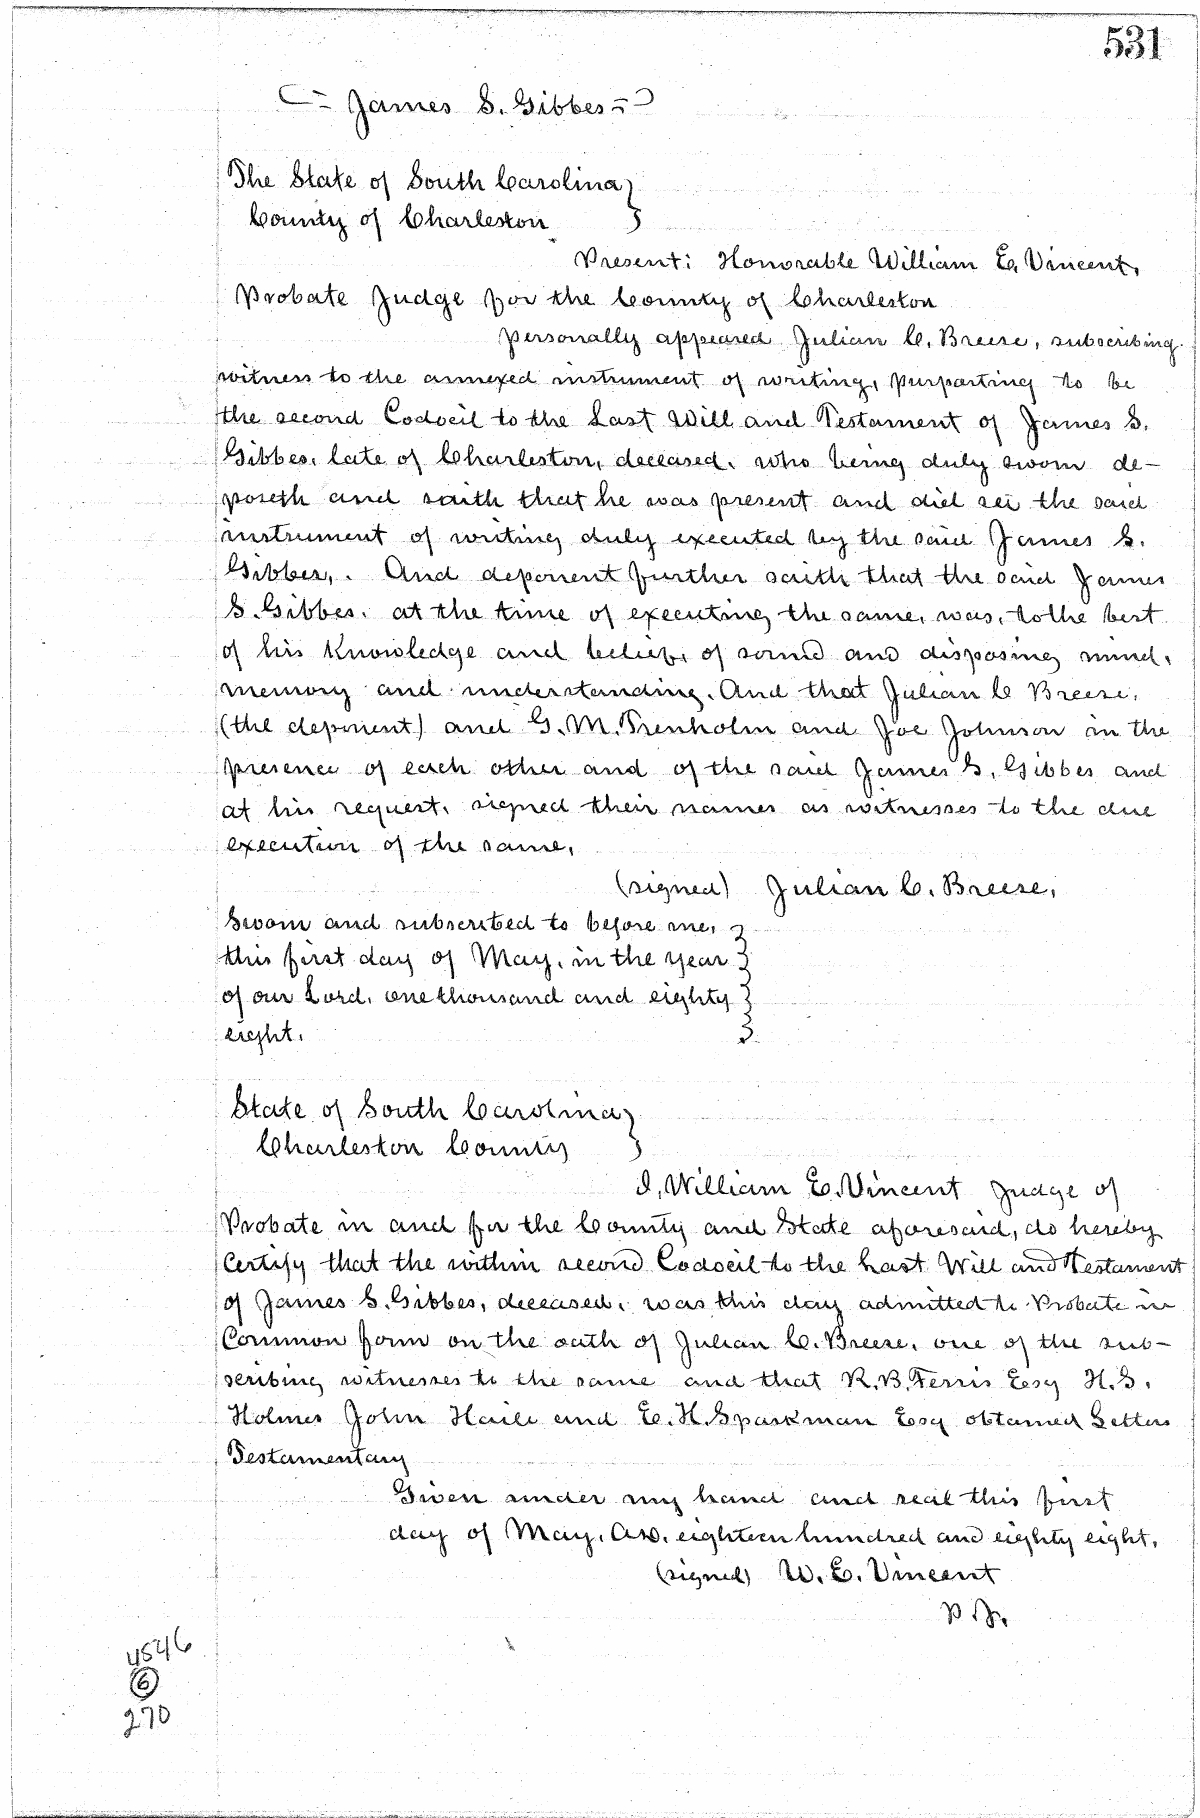 531
James S. Gibbes
The State of South Carolina }
County of Charleston }
Present: Honorable William E. Vincent,
Probate Judge for the County of Charleston
personally appeared Julian C. Breese, subscribing
witness to the annexed instrument of writing, purporting to be
the second Codocil to the Last Will and Testament of James S.
Gibbes, late of Charleston, deceased, who being duly sworn de-
poseth and saith that he was present and did see the said
instrument of writing duly executed by the said James S.
Gibbes, . And deponent further saith that the said James
S. Gibbes, at the time of executing the same, was, to the best
of his Knowledge and belief, of sound and disposing mind,
memory and understanding. And that Julian C Breese,
(the deponent) and G. M. Trenholm and Joe Johnson in the
presence of each other and of the said James S. Gibbes and
at his request, signed their names as witnesses to the due
execution of the same,
(signed) Julian C. Breese,
Sworn and subscribed to before me, }
this first day of May, in the year }
of our Lord, one thousand and eighty }
eight. }
State of South Carolina }
Charleston County }
I, William E. Vincent Judge of
Probate in and for the County and State aforesaid, do hereby
Certify that the within second Codocil to the Last Will and Testament
of James S. Gibbes, deceased, was this day admitted to Probate in
Common form on the oath of Julian C. Breese, one of the sub-
scribing witnesses to the same and that R. B. Ferris Esq H. S.
Holmes John Haile and E. H. Sparkman Esq obtained Letters
Testamentary
Given under my hand and seal this first
day of May, A.D. eighteen hundred and eighty eight.
(signed) W. E. Vincent
P. J.
4546
6
270